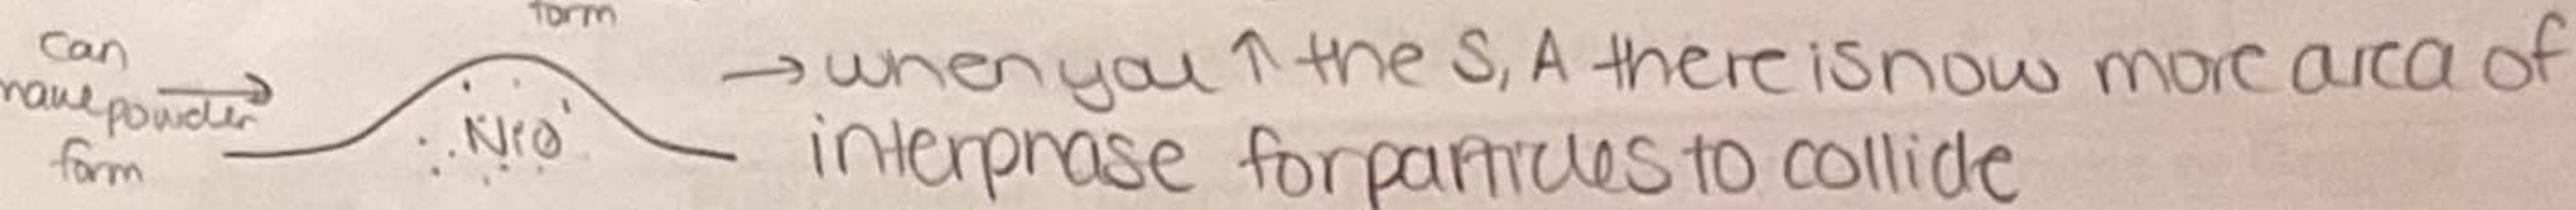 form
can
have powder
form
NiO
→ when you ↑ the S,A there is now more area of
interphase for particles to collide